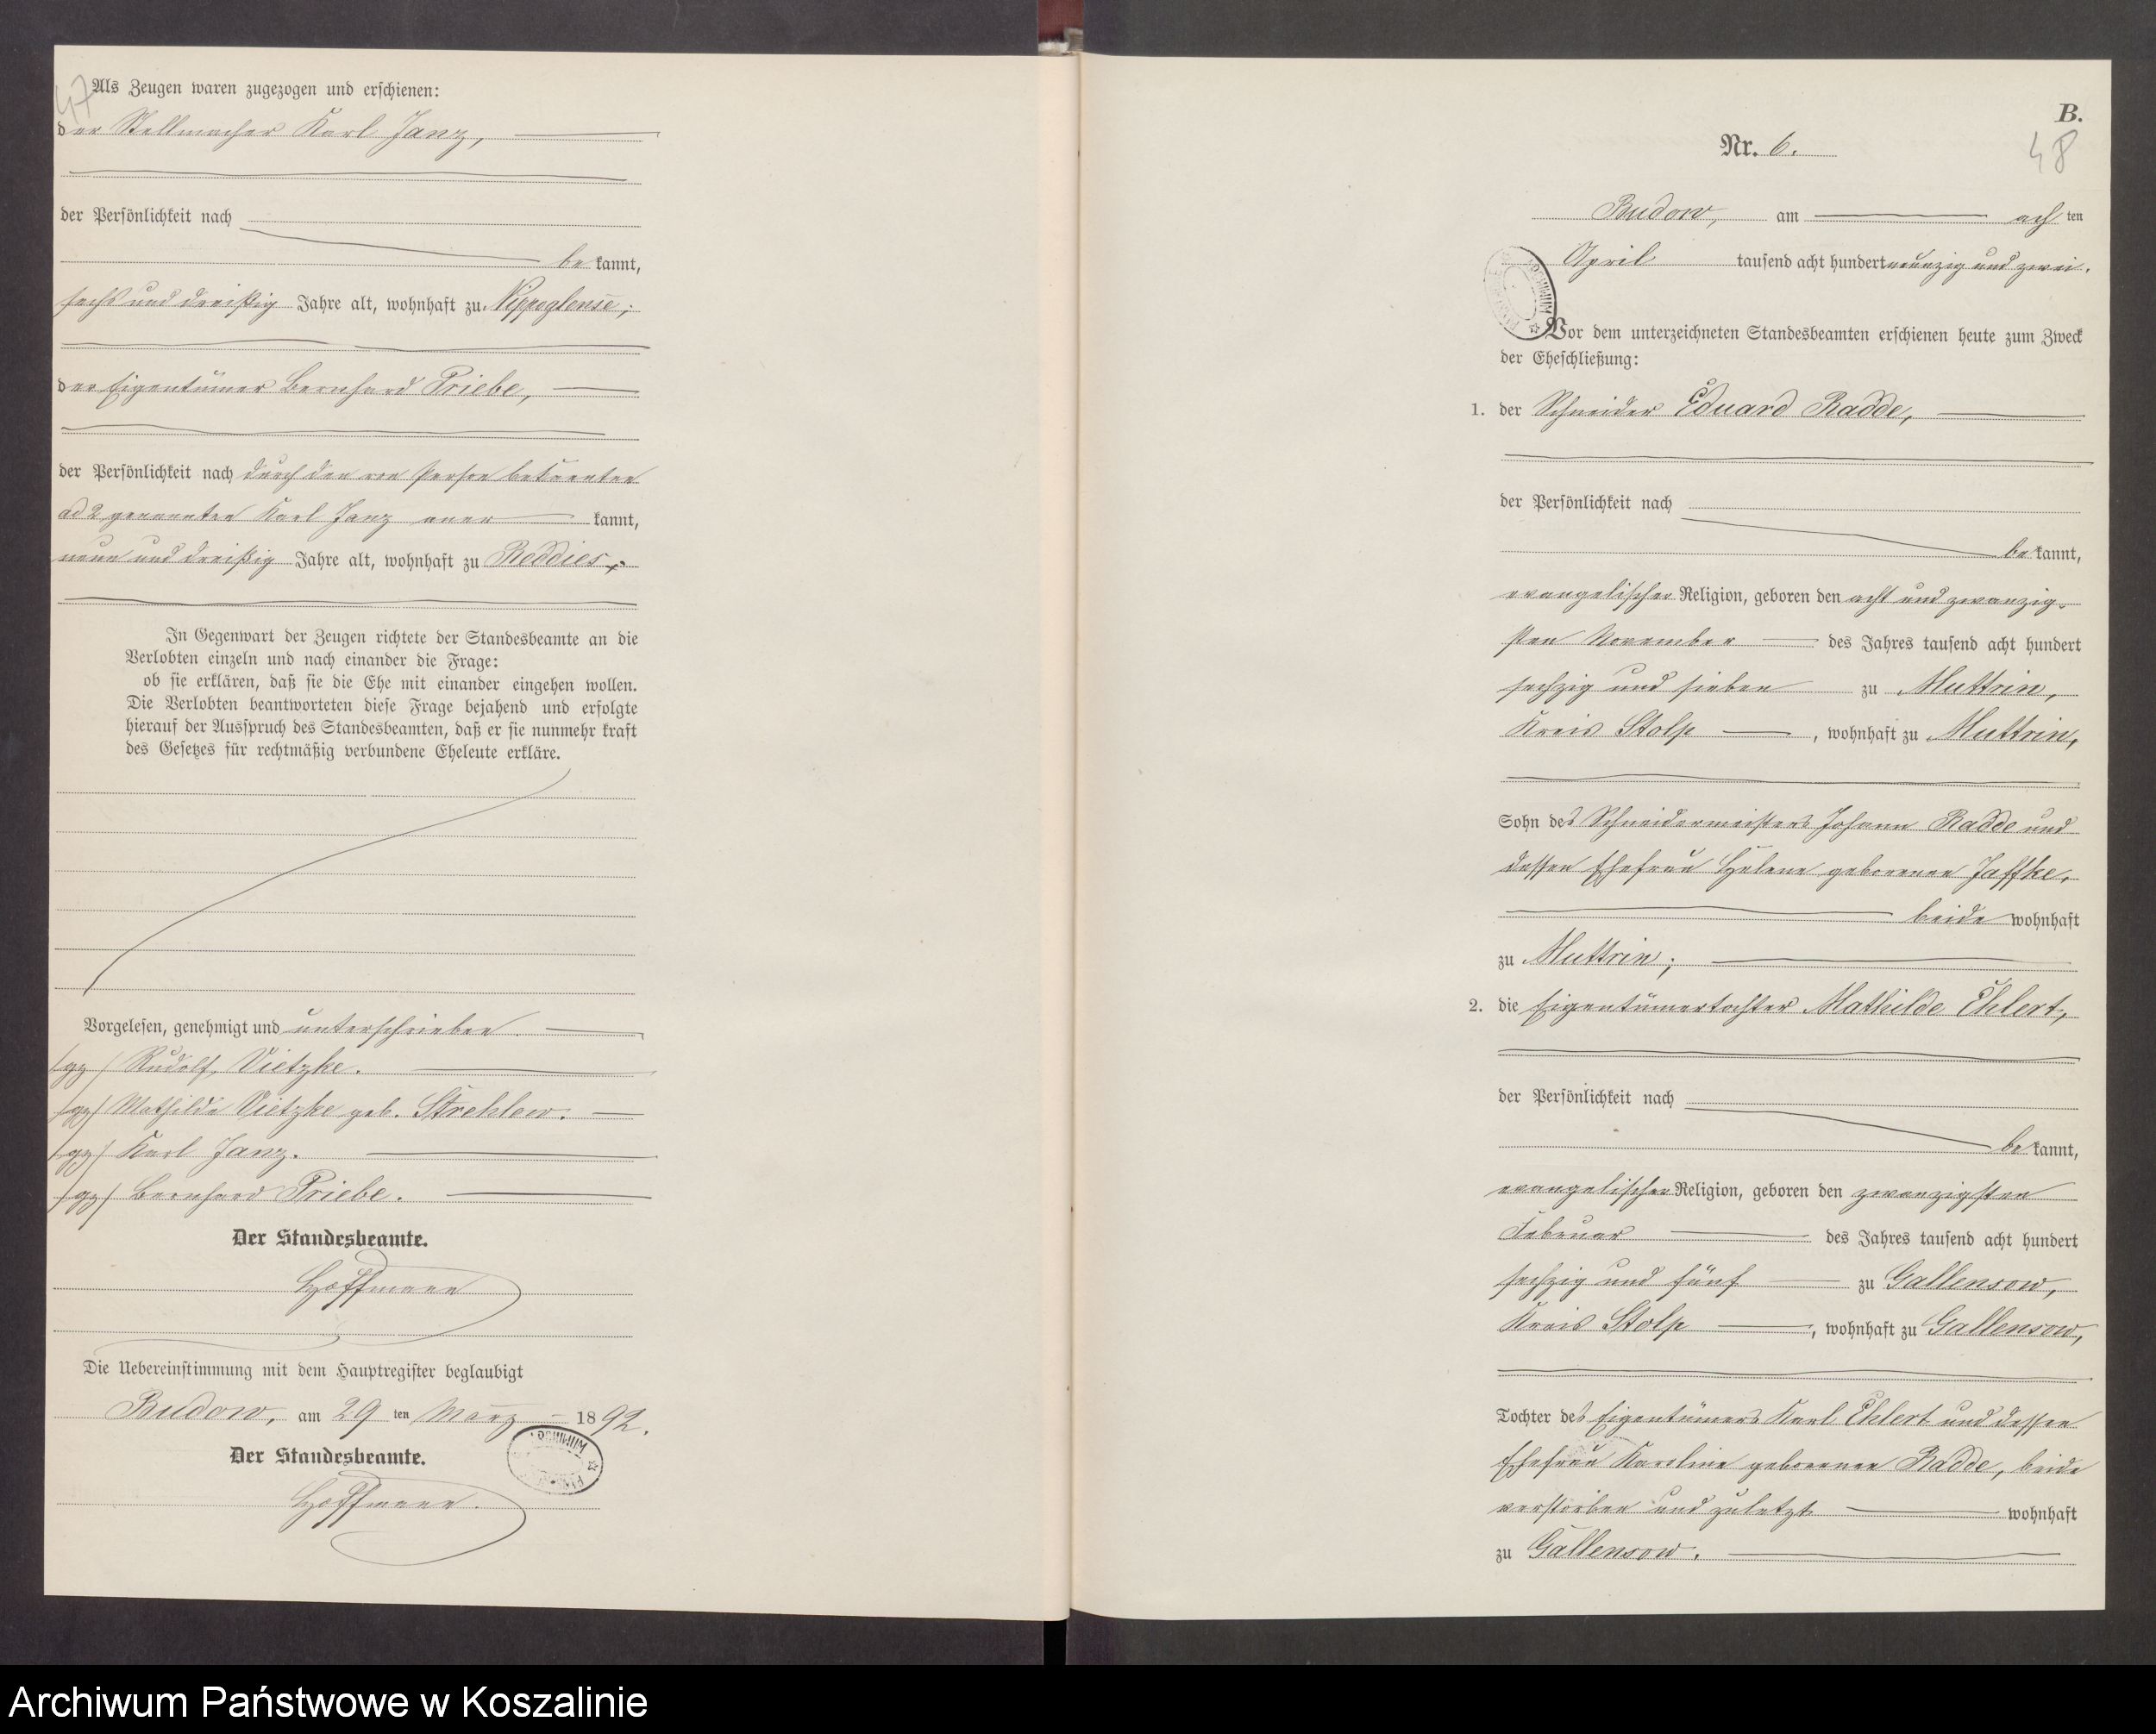 47
Als Zeugen waren zugezogen und erschienen:
der Stellmacher Karl Janz,
der Persönlichkeit nach
be kannt,
sechs und dreißig Jahre alt, wohnhaft zu Nippoglense;
der Eigentümer Bernhard Priebe,
der Persönlichkeit nach durch den von Person bekannten
ad 2 genannten Karl Janz aner kannt,
neun und dreißig Jahre alt, wohnhaft zu Reddies.
In Gegenwart der Zeugen richtete der Standesbeamte an die
Verlobten einzeln und nach einander die Frage:
ob sie erklären, daß sie die Ehe mit einander eingehen wollen.
Die Verlobten beantworteten diese Frage bejahend und erfolgte
hierauf der Ausspruch des Standesbeamten, daß er sie nunmehr kraft
des Gesetzes für rechtmäßig verbundene Eheleute erkläre.
Vorgelesen, genehmigt und unterschrieben.
/gz/ Rudolf Vietzke.
/gz/ Mathilde Vietzke geb. Strehlow.
/gz/ Karl Janz.
/gz/ Bernhard Priebe.
Der Standesbeamte.
Hoffmann
Die Uebereinstimmung mit dem Hauptregister beglaubigt
Budow, am 29 ten März 1892.
Der Standesbeamte.
Hoffmann.
B.
48
Nr. 6.
Budow, am ach ten
April tausend acht hundert neunzig und zwei.
Vor dem unterzeichneten Standesbeamten erschienen heute zum Zweck
der Eheschließung:
1. der Schneider Eduard Radde,
der Persönlichkeit nach
be kannt,
evangelischer Religion, geboren den acht und zwanzig-
sten November des Jahres tausend acht hundert
sechzig und sieben zu Muttrin,
Kreis Stolp, wohnhaft zu Muttrin,
Sohn des Schneidermeisters Johann Radde und
dessen Ehefrau Helene geborenen Jaffke,
beide wohnhaft
zu Muttrin;
2. die Eigentümertochter Mathilde Ehlert,
der Persönlichkeit nach
be kannt,
evangelischer Religion, geboren den zwanzigsten
Februar des Jahres tausend acht hundert
sechzig und fünf zu Gallensow,
Kreis Stolp, wohnhaft zu Gallensow,
Tochter des Eigentümers Karl Ehlert und dessen
Ehefrau Karoline geborenen Radde, beide
verstorben und zuletzt wohnhaft
zu Gallensow.
Archiwum Państwowe w Koszalinie